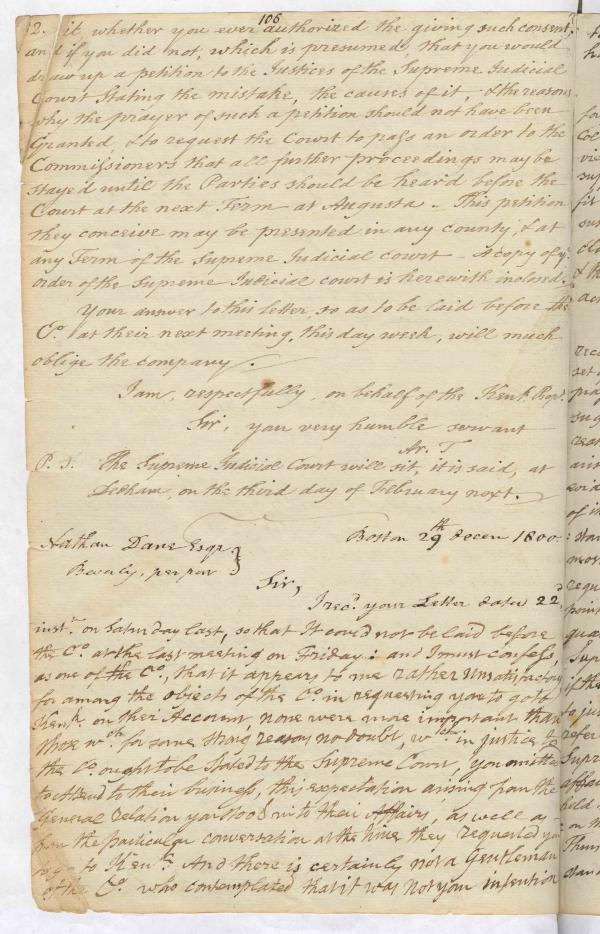 106
2. it, whether you ever authorized the giving such consent,
and if you did not, which is presumed, that you would
draw up a petition to the Justices of the Supreme Judicial
Court Stating the mistake, the causes of it, & the reasons
why the prayer of such a petition should not have been
Granted, & to request the Court to pass an order to the
Commissioners that all further proceedings may be
stayed until the Parties should be heard before the
Court at the next Term at Augusta. This petition
they conceive may be presented in any county, & at
any Term of the Supreme Judicial Court - A copy of ye.
order of the Supreme Judicial court is herewith inclosed.
Your answer to this letter, so as to be laid before the
Co. at their next meeting, this day week, will much
oblige the company.
I am, respectfully, on behalf of the Kenk. Propr.
Sir, your very humble servant
Ar. T
P. S. The Supreme Judicial Court will sit, it is said, at
Dedham, on the third day of February next.
Boston 29th Decem 1800.
Nathan Dane Esqr
Beverly, per post
Sir,
I recd. your Letter dated 22d
inst. on Saturday last, so that It could not be laid before
the Co. at the last meeting on Friday: and I must Confess,
as one of the Co., that it appears to me rather unsatisfactory
for among the objects of the Co. in requesting you to go to
Kenk. on their Account, none were more important than
those wch. for some strong reasons no doubt, wch. in justice to
the Co. ought to be Stated to the Supreme Court, you omitted
to attend to their business, this expectation arising from the
General relation you stood in to their Affairs, as well as
from the particular conversation at the time they requested you
to go to Kenk. And there is certainly not a Gentleman
of the Co. who contemplated that it was not your intention